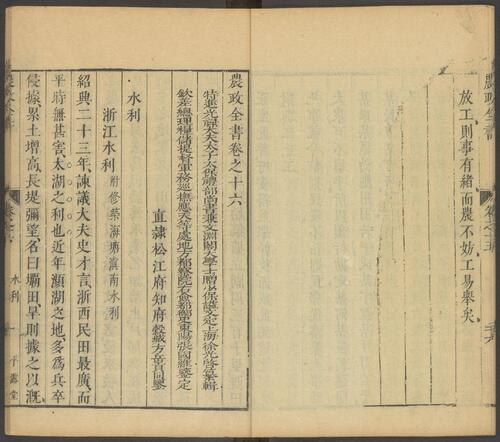 放工則事有緒而農不妨工易舉矣
農政全書卷之十六
特進光祿大夫太子太保禮部尚書兼文淵閣大學士贈少保諡文定上海徐光啓纂輯
欽差總理糧儲提督軍務巡撫應天等處地方都察院右僉都御史東陽張國維鑒定
直隸松江府知府穀城方岳貢同鑒
水利
浙江水利附修築海塘滇南水利
紹興二十三年諫議大夫史才言浙西民田最廣而
平時無甚害太湖之利也近年瀕湖之地多爲兵卒
侵據累土增高長堤彌望名曰壩田旱則據之以溉
水利
平露堂